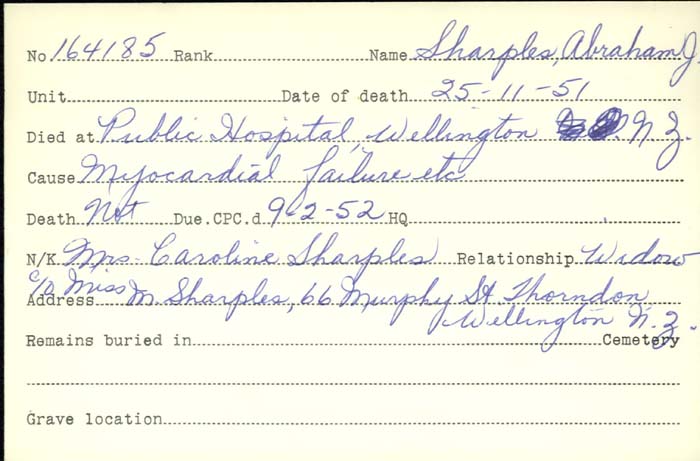 No 164185 Rank Name Sharples, Abraham J.
Unit Date of death 25-11-51
Died at Public Hospital, Wellington N.Z.
Cause Myocardial failure etc
Death Not Due.CPC.d 9-2-52 HQ
N/K Mrs. Caroline Sharples Relationship Widow
c/o Miss
Address M Sharples, 66 Murphy St. Thorndon
Wellington N.Z.
Remains buried in Cemetery
Grave location